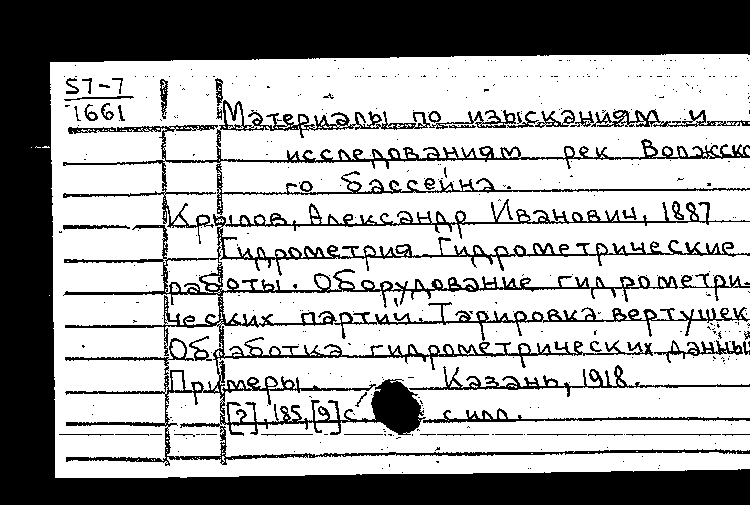 57-7
1661
Материалы по изысканиям и
исследованиям рек Волжско
го бассейна.
Крылов, Александр Иванович, 1887
Гидрометрия. Гидрометрические
работы. Оборудование гидрометри-
ческих партий. Тарировка вертушек
Обработка гидрометрических данны
Примеры. Казань, 1918.
[2], 185, [9] с. с илл.